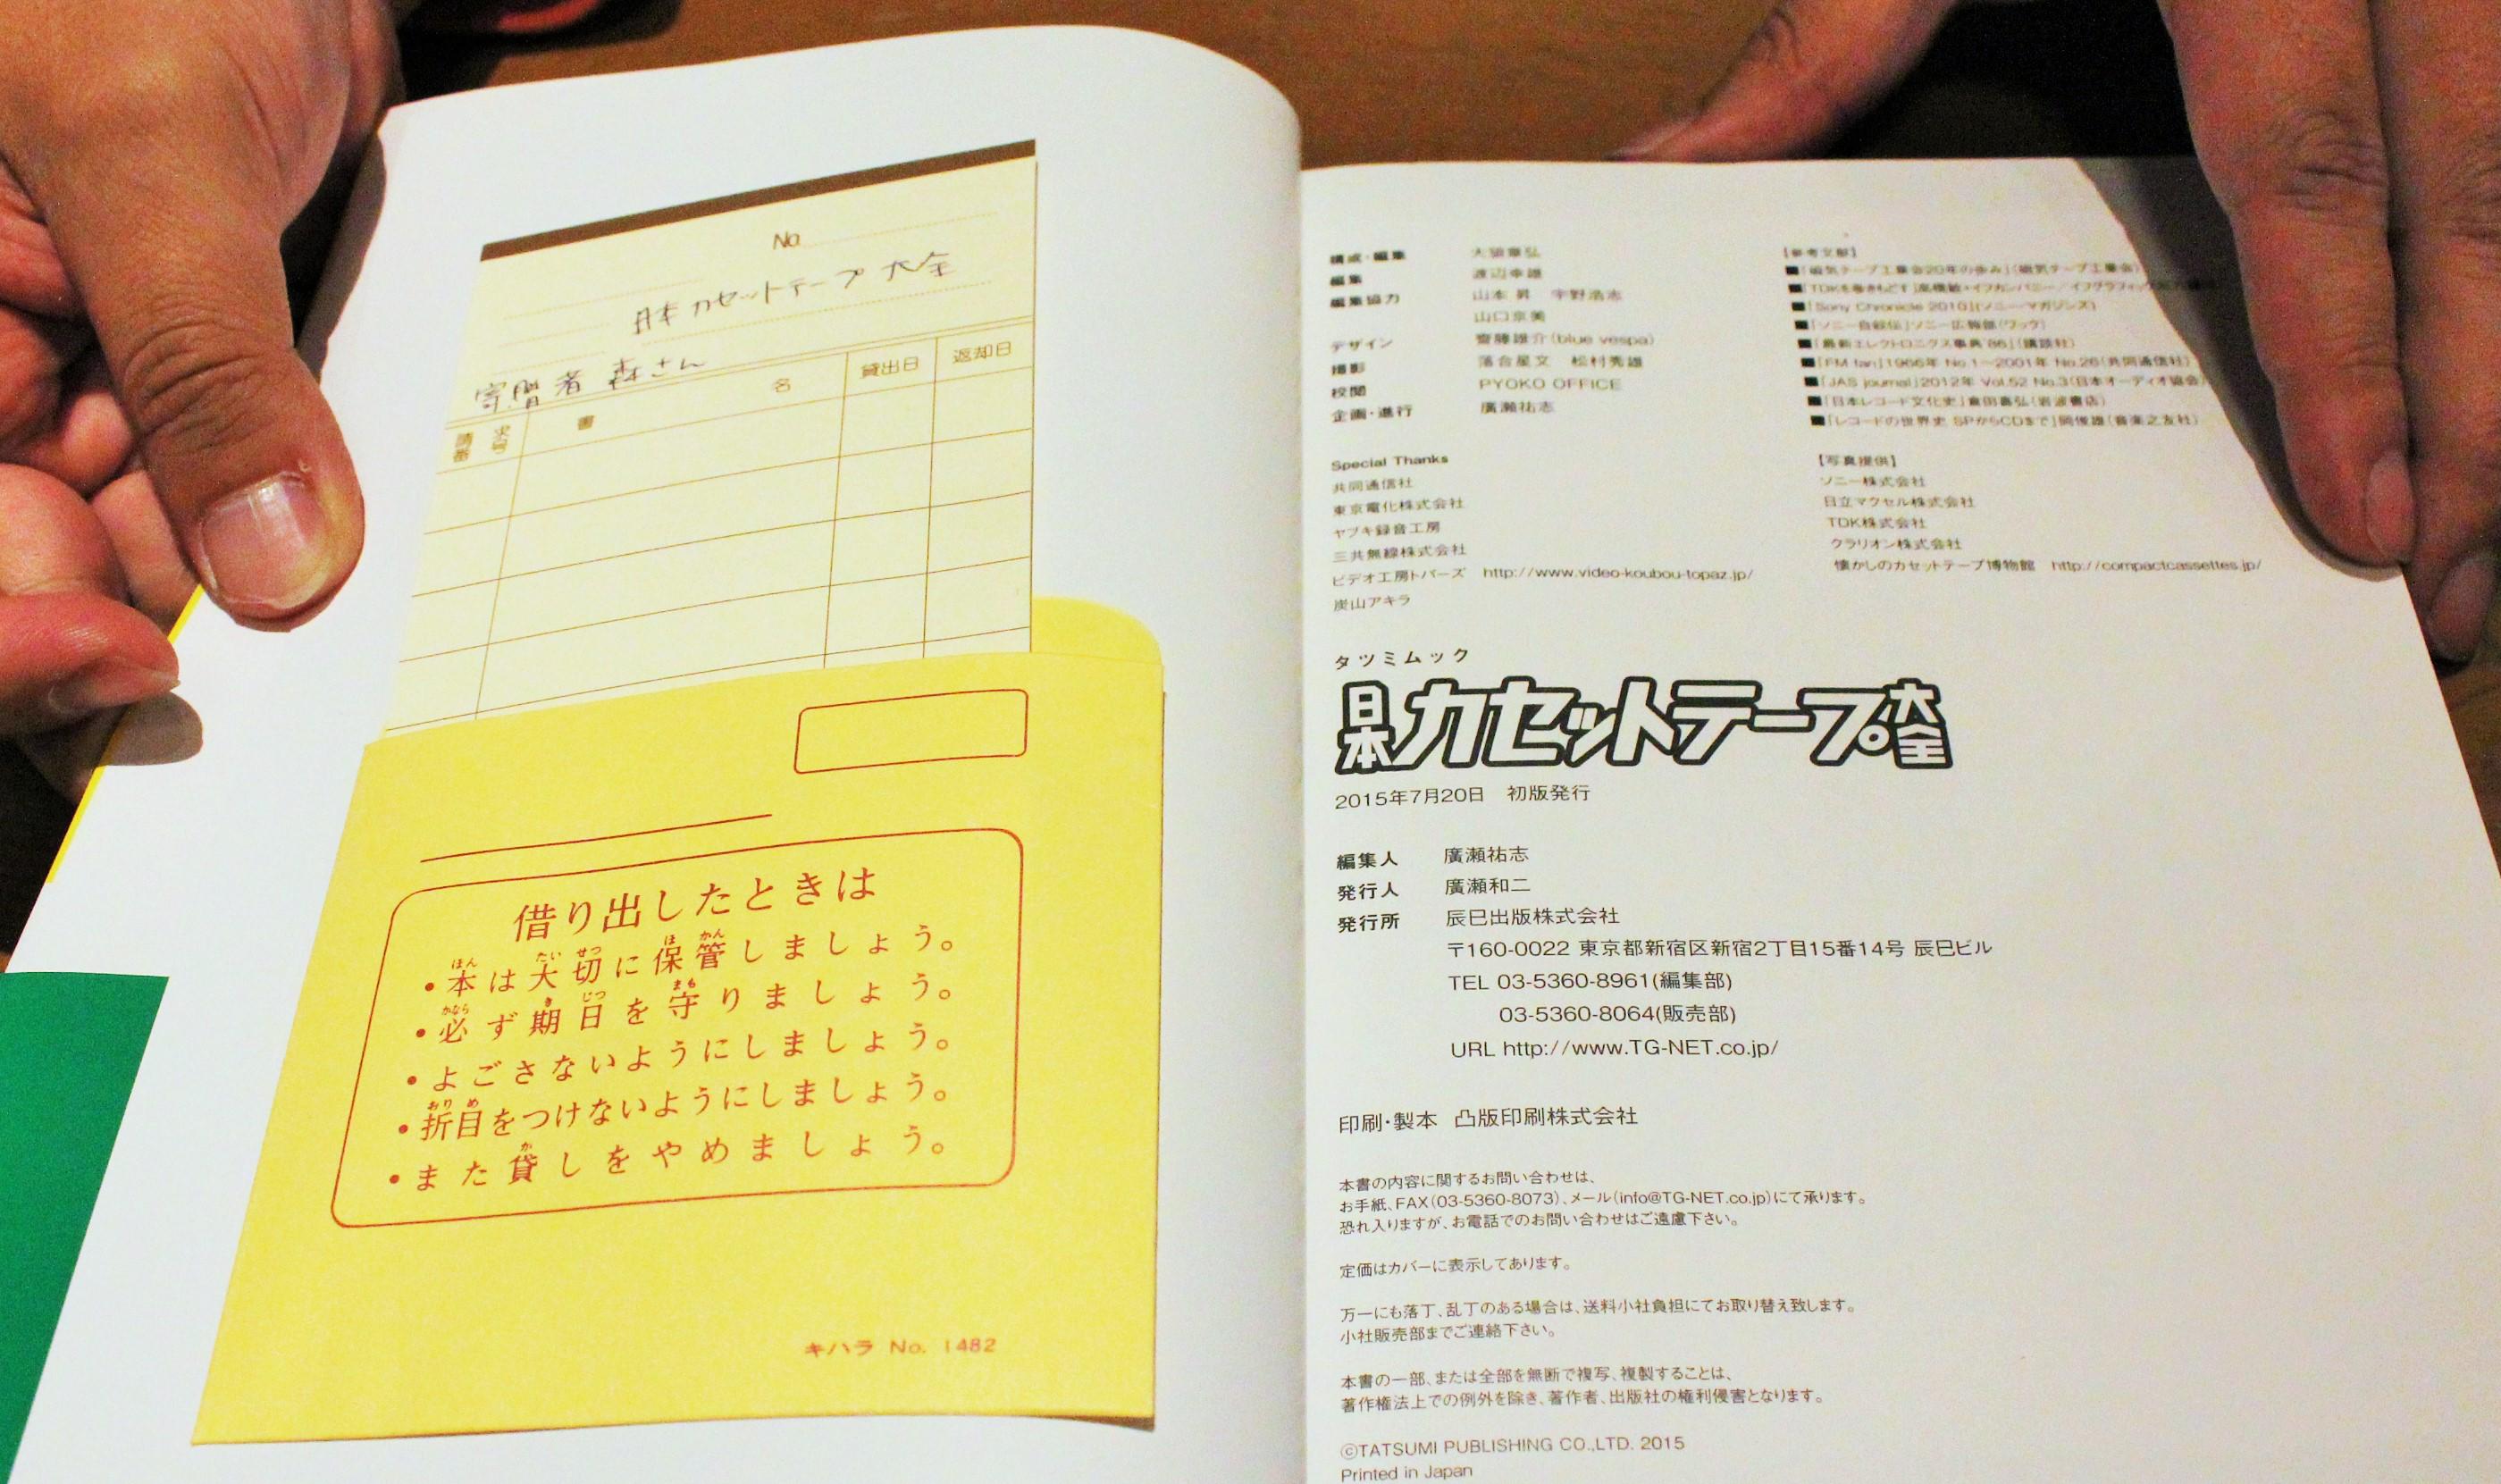 No.
日本カセットテープ大全
寄贈者 森さん
請求番号 書名 貸出日 返却日
借り出したときは
・本は大切に保管しましょう。
・必ず期日を守りましょう。
・よごさないようにしましょう。
・折目をつけないようにしましょう。
・また貸しをやめましょう。
キハラ No. 1482
構成・編集
編集 渡辺幸雄
編集協力 山本 昇 宇野浩志
山口京美
デザイン 齋藤雄介(blue vespa)
撮影 落合星文 松村秀雄
校閲 PYOKO OFFICE
企画・進行 廣瀬祐志
Special Thanks
共同通信社
東京電化株式会社
ヤブキ録音工房
三共無線株式会社
ビデオ工房トパーズ http://www.video-koubou-topaz.jp/
炭山アキラ
【参考文献】
■「磁気テープ工業会20年の歩み」(磁気テープ工業会)
■「Sony Chronicle 2010」(ソニー・マガジンズ)
■「ソニー自叙伝」ソニー広報部(ワック)
■「最新エレクトロニクス事典'86」(講談社)
■「FM fan」1966年 No.1〜2001年 No.26(共同通信社)
■「JAS journal」2012年 Vol.52 No.3(日本オーディオ協会)
■「日本レコード文化史」倉田喜弘(岩波書店)
■「レコードの世界史 SPからCDまで」岡俊雄(音楽之友社)
【写真提供】
ソニー株式会社
日立マクセル株式会社
TDK株式会社
クラリオン株式会社
懐かしのカセットテープ博物館 http://compactcassettes.jp/
タツミムック
日本カセットテープ大全
2015年7月20日 初版発行
編集人 廣瀬祐志
発行人 廣瀬和二
発行所 辰巳出版株式会社
〒160-0022 東京都新宿区新宿2丁目15番14号 辰巳ビル
TEL 03-5360-8961(編集部)
03-5360-8064(販売部)
URL http://www.TG-NET.co.jp/
印刷・製本 凸版印刷株式会社
本書の内容に関するお問い合わせは、
お手紙、FAX(03-5360-8073)、メール(info@TG-NET.co.jp)にて承ります。
恐れ入りますが、お電話でのお問い合わせはご遠慮下さい。
定価はカバーに表示してあります。
万一にも落丁、乱丁のある場合は、送料小社負担にてお取り替え致します。
小社販売部までご連絡下さい。
本書の一部、または全部を無断で複写、複製することは、
著作権法上での例外を除き、著作者、出版社の権利侵害となります。
©TATSUMI PUBLISHING CO.,LTD. 2015
Printed in Japan